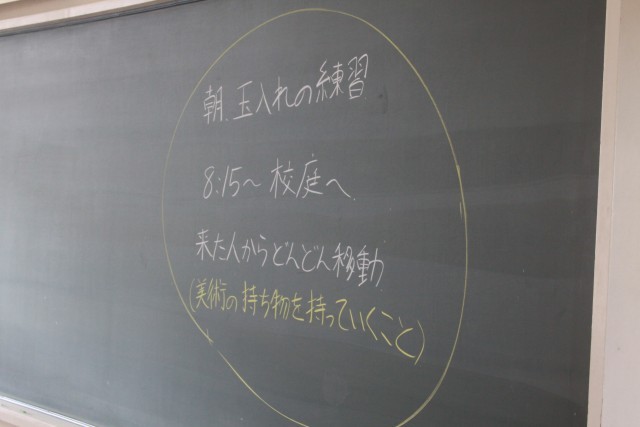 朝、玉入れの練習
8:15〜 校庭へ
来た人からどんどん移動
(美術の持ち物を持っていくこと)